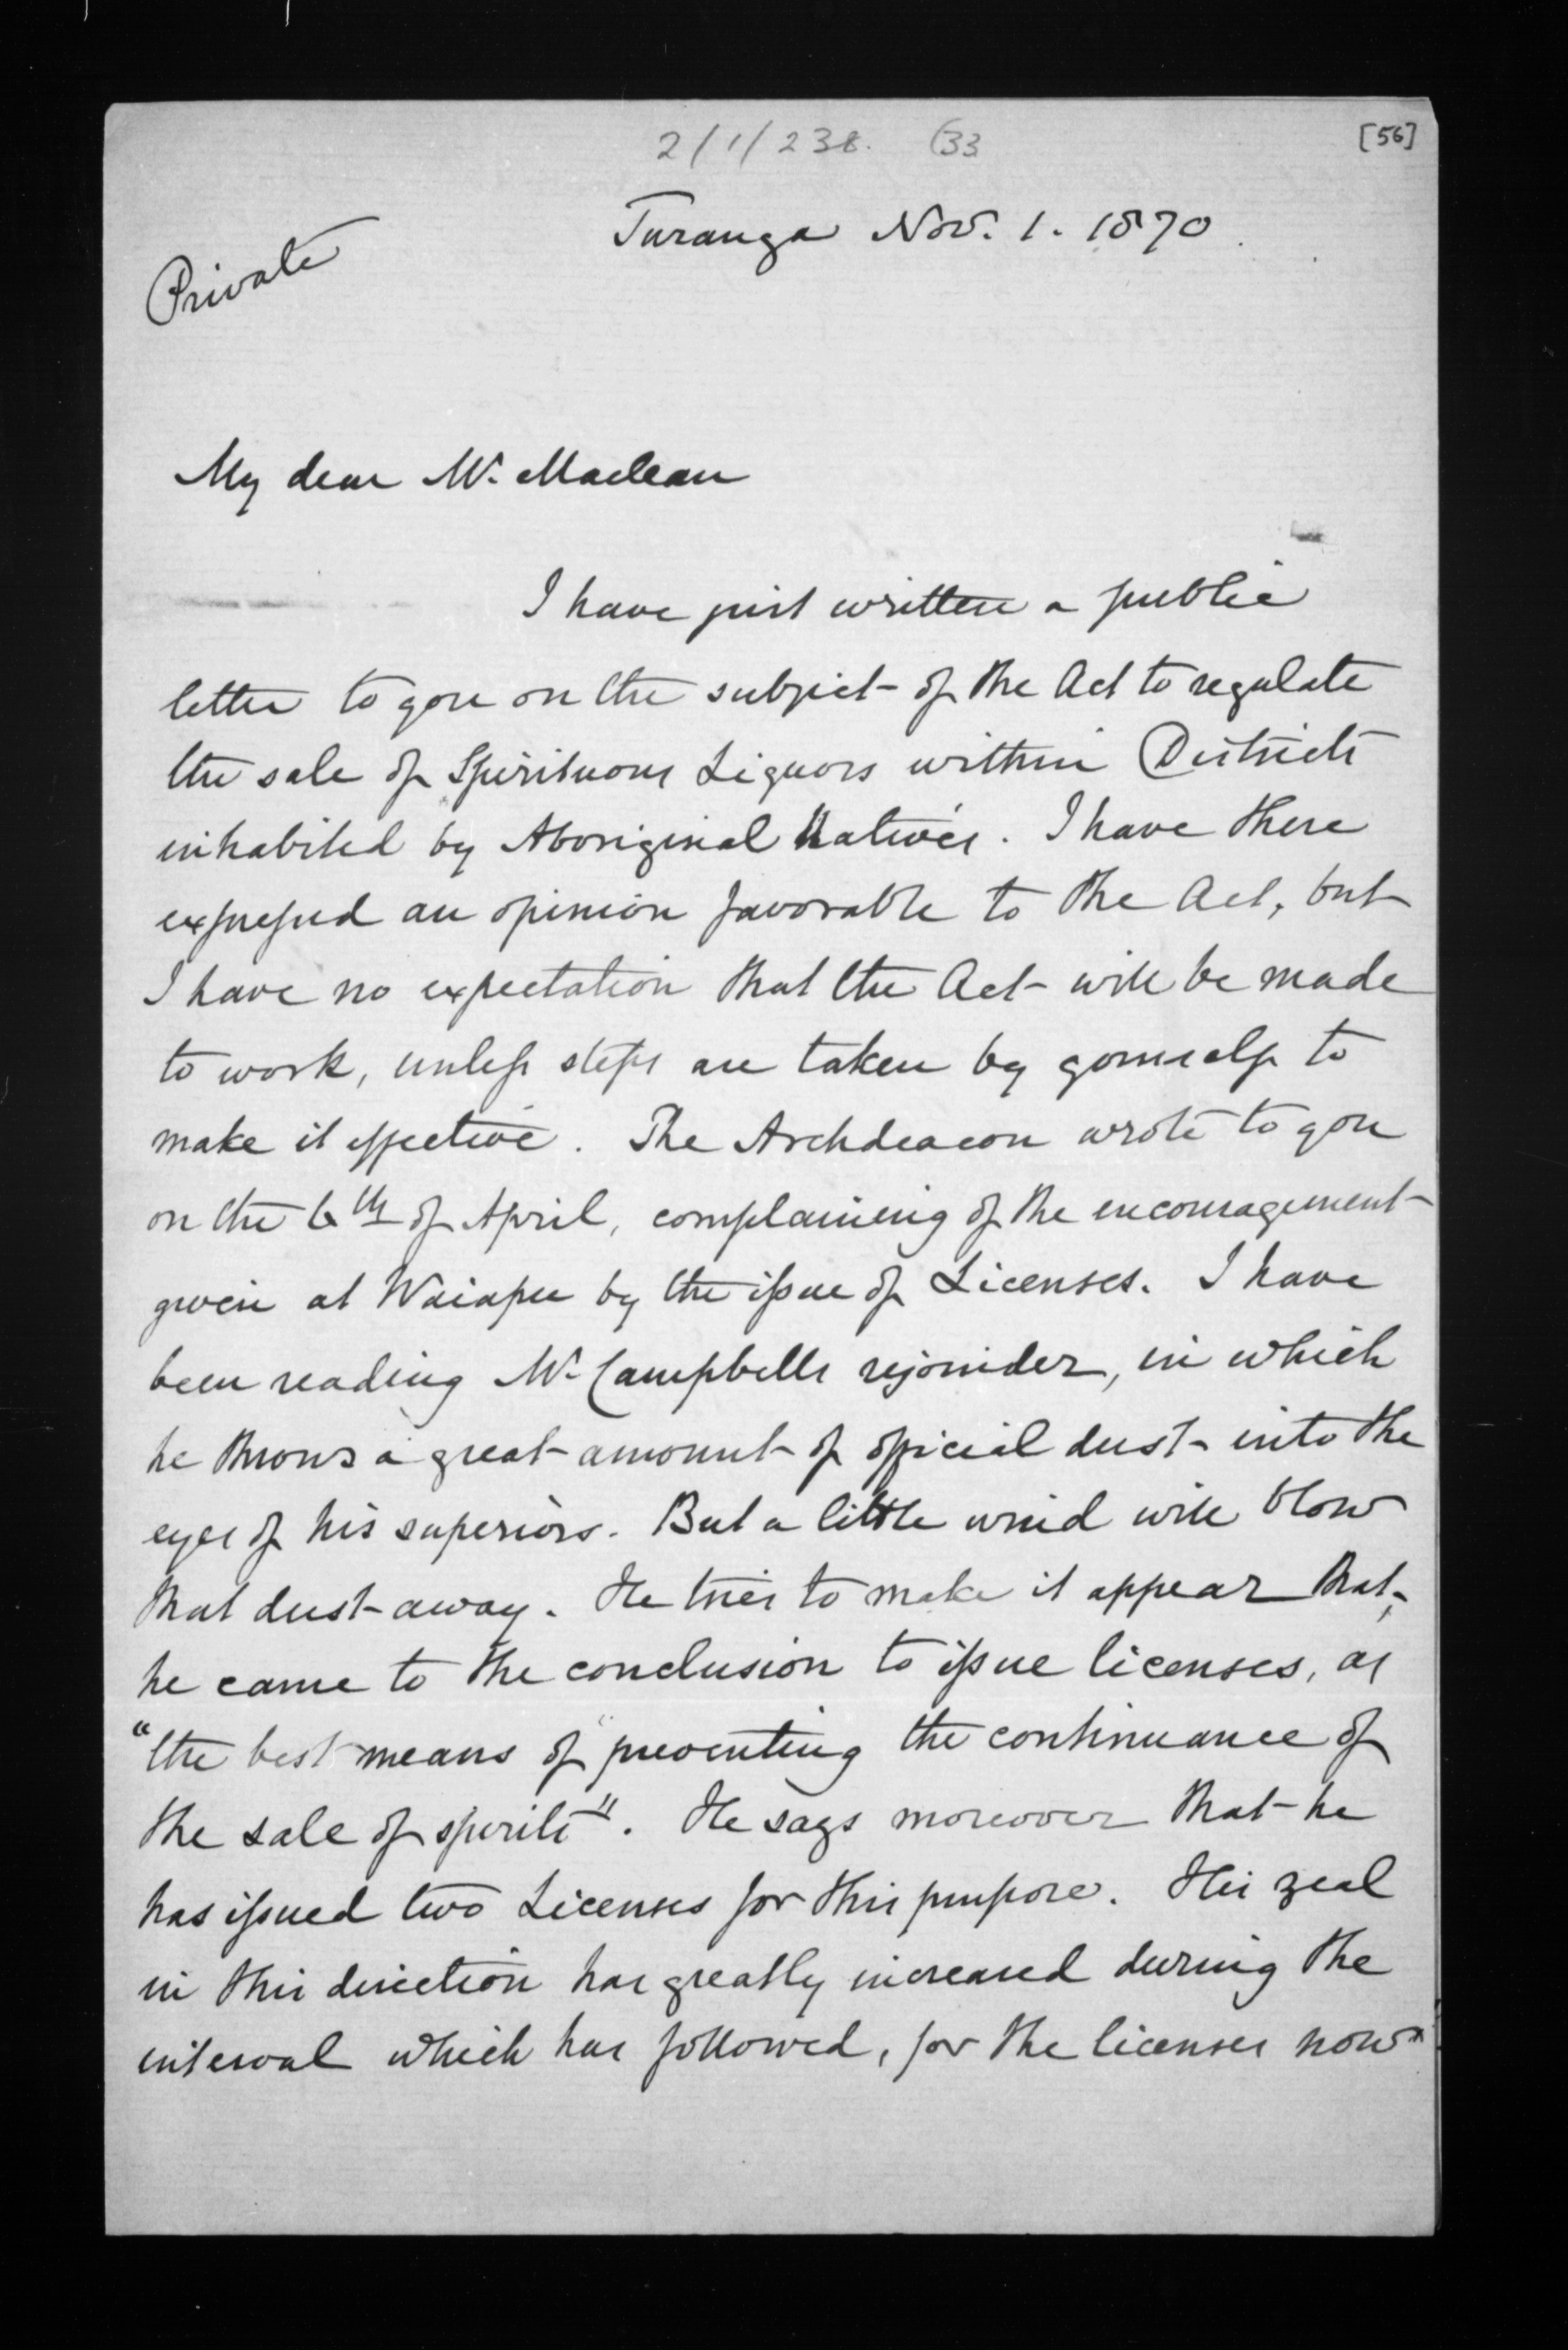 2/1/238. (33
[56]
Turanga Nov. 1. 1870.
Private
My dear Mr. Maclean
I have just written a public
letter to you on the subject of the Act to regulate
the sale of Spirituous Liquors within Districts
inhabited by Aboriginal Natives. I have there
expressed an opinion favorable to the Act, but
I have no expectation that the Act will be made
to work, unless steps are taken by yourself to
make it effective. The Archdeacon wrote to you
on the 6th of April, complaining of the encouragement
given at Waiapu by the issue of Licenses. I have
been reading Mr. Campbells rejoinder, in which
he throws a great amount of official dust into the
eyes of his superiors. But a little wind will blow
that dust away. He tries to make it appear that,
he came to the conclusion to issue licenses, as
"the best means of preventing the continuance of
the sale of spirits". He says moreover that he
has issued two Licenses for this purpose. His zeal
in this direction has greatly increased during the
interval which has followed, for the licenses now